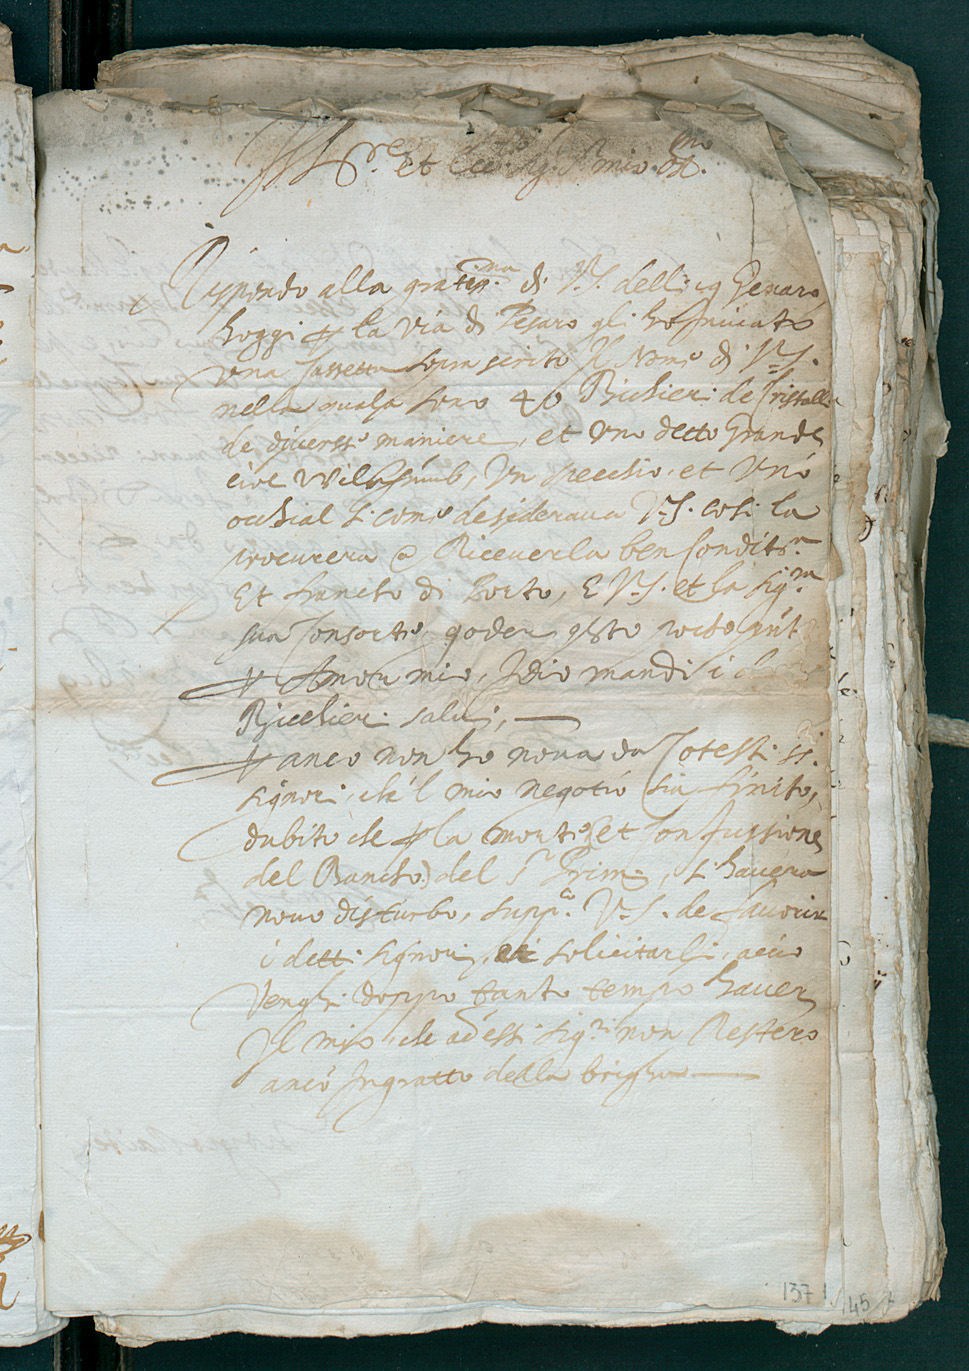 et Ecc. Sig. mio
Rispondo alla gratis.ma di V.S. delli 19 Genaro
hoggi la via di Pesaro gli ho Inviato
una Cassetta sopra scritto Il Nome di V.S.
nella quala sono 40 Bichieri de Cristallo
de diverse maniere, et uno detto Grande
cioe Un specchio, et uno
ochial si come desiderava V.S. cosi la
procurera a Riceverla ben Condit.
Et francho di Porto, E V.S. et la Sig.ra
sua Consorte, goder robbe
Amor mio, Idio mandi i
Bicchieri salvi,
anco non ho nova da Cotesti SS.
signori, che'l mio negotio sia finito,
dubito che la morte (et Confussione
del Bancho) del S.r Prim, si havera
novo disturbo, supp.o V.S. de favorir
i detti signori, et solicitarli, acio
venghi doppo tanto tempo haver
Il mio, che ad essi Sig.ri non Restero
anco Ingratto della brigha
137
145